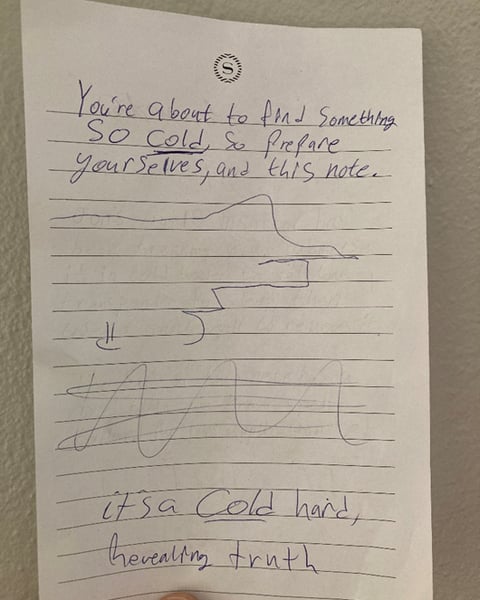 S
You're about to find something
So cold, so prepare
yourselves, and this note.
it's a Cold hard,
Revealing truth